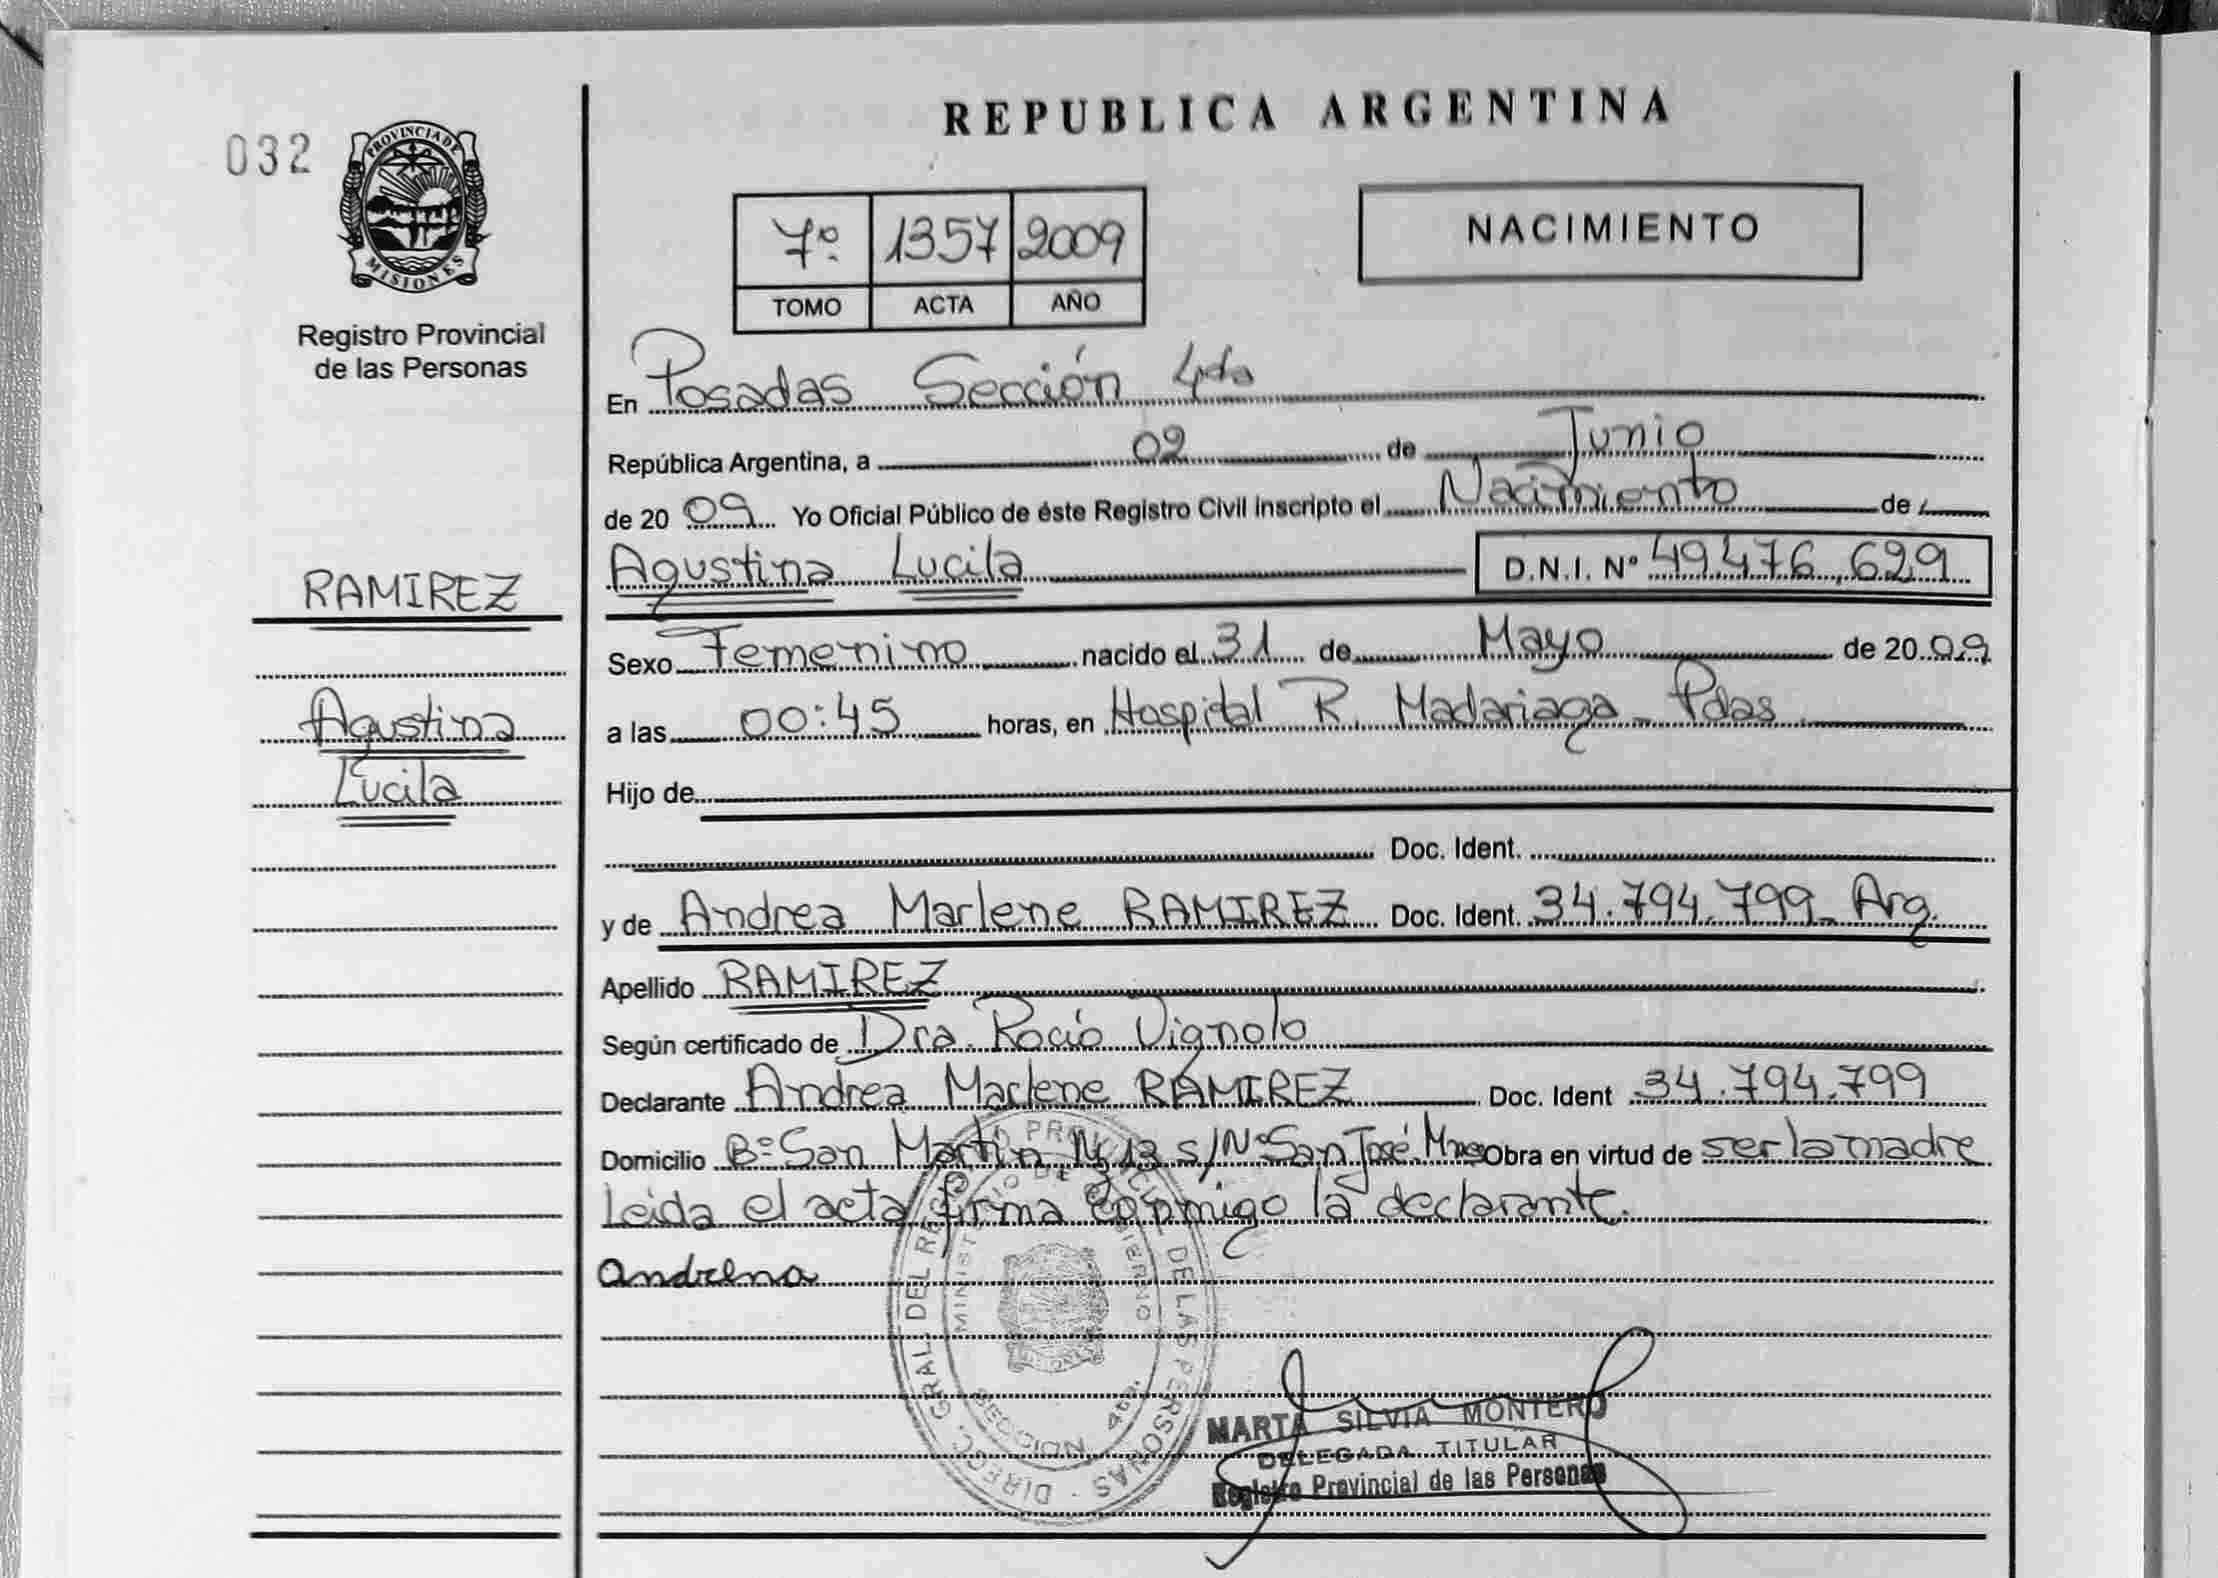 REPUBLICA ARGENTINA
032
PROVINCIA DE
MISIONES
Registro Provincial
de las Personas
7º 1357 2009
TOMO ACTA AÑO
NACIMIENTO
En Posadas Sección 4ta
República Argentina, a 02 de Junio
de 2009 Yo Oficial Público de éste Registro Civil Inscripto el Nacimiento de
Agustina Lucila D.N.I. Nº 49.476.629
RAMIREZ
Agustina
Lucila
Sexo Femenino nacido el 31 de Mayo de 2009
a las 00:45 horas, en Hospital R. Madariaga - Pdas
Hijo de
Doc. Ident.
y de Andrea Marlene RAMIREZ Doc. Ident. 34.794.799 - Arg.
Apellido RAMIREZ
Según certificado de Dra. Rocío Vignolo
Declarante Andrea Marlene RAMIREZ Doc. Ident 34.794.799
Domicilio Bº San Martín Mz 13 s/Nº San José. Mnes Obra en virtud de ser la madre
Leida el acta firma conmigo la declarante.
DIREC. GRAL DEL REGISTRO PROVINCIAL DE LAS PERSONAS
MINISTERIO DE GOBIERNO
SECCION 4ta.
MARTA SILVIA MONTERO
DELEGADA TITULAR
Registro Provincial de las Personas